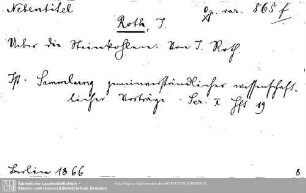 Nebentitel
Op. var. 865 f
Roth, J.
Ueber die Steinkohlen. Von J. Roth.
In: Sammlung gemeinverständlicher wissenschaft-
licher Vorträge. Ser. I Hft 19
Berlin 1866
8
Sächsische Landesbibliothek -
Staats- und Universitätsbibliothek Dresden